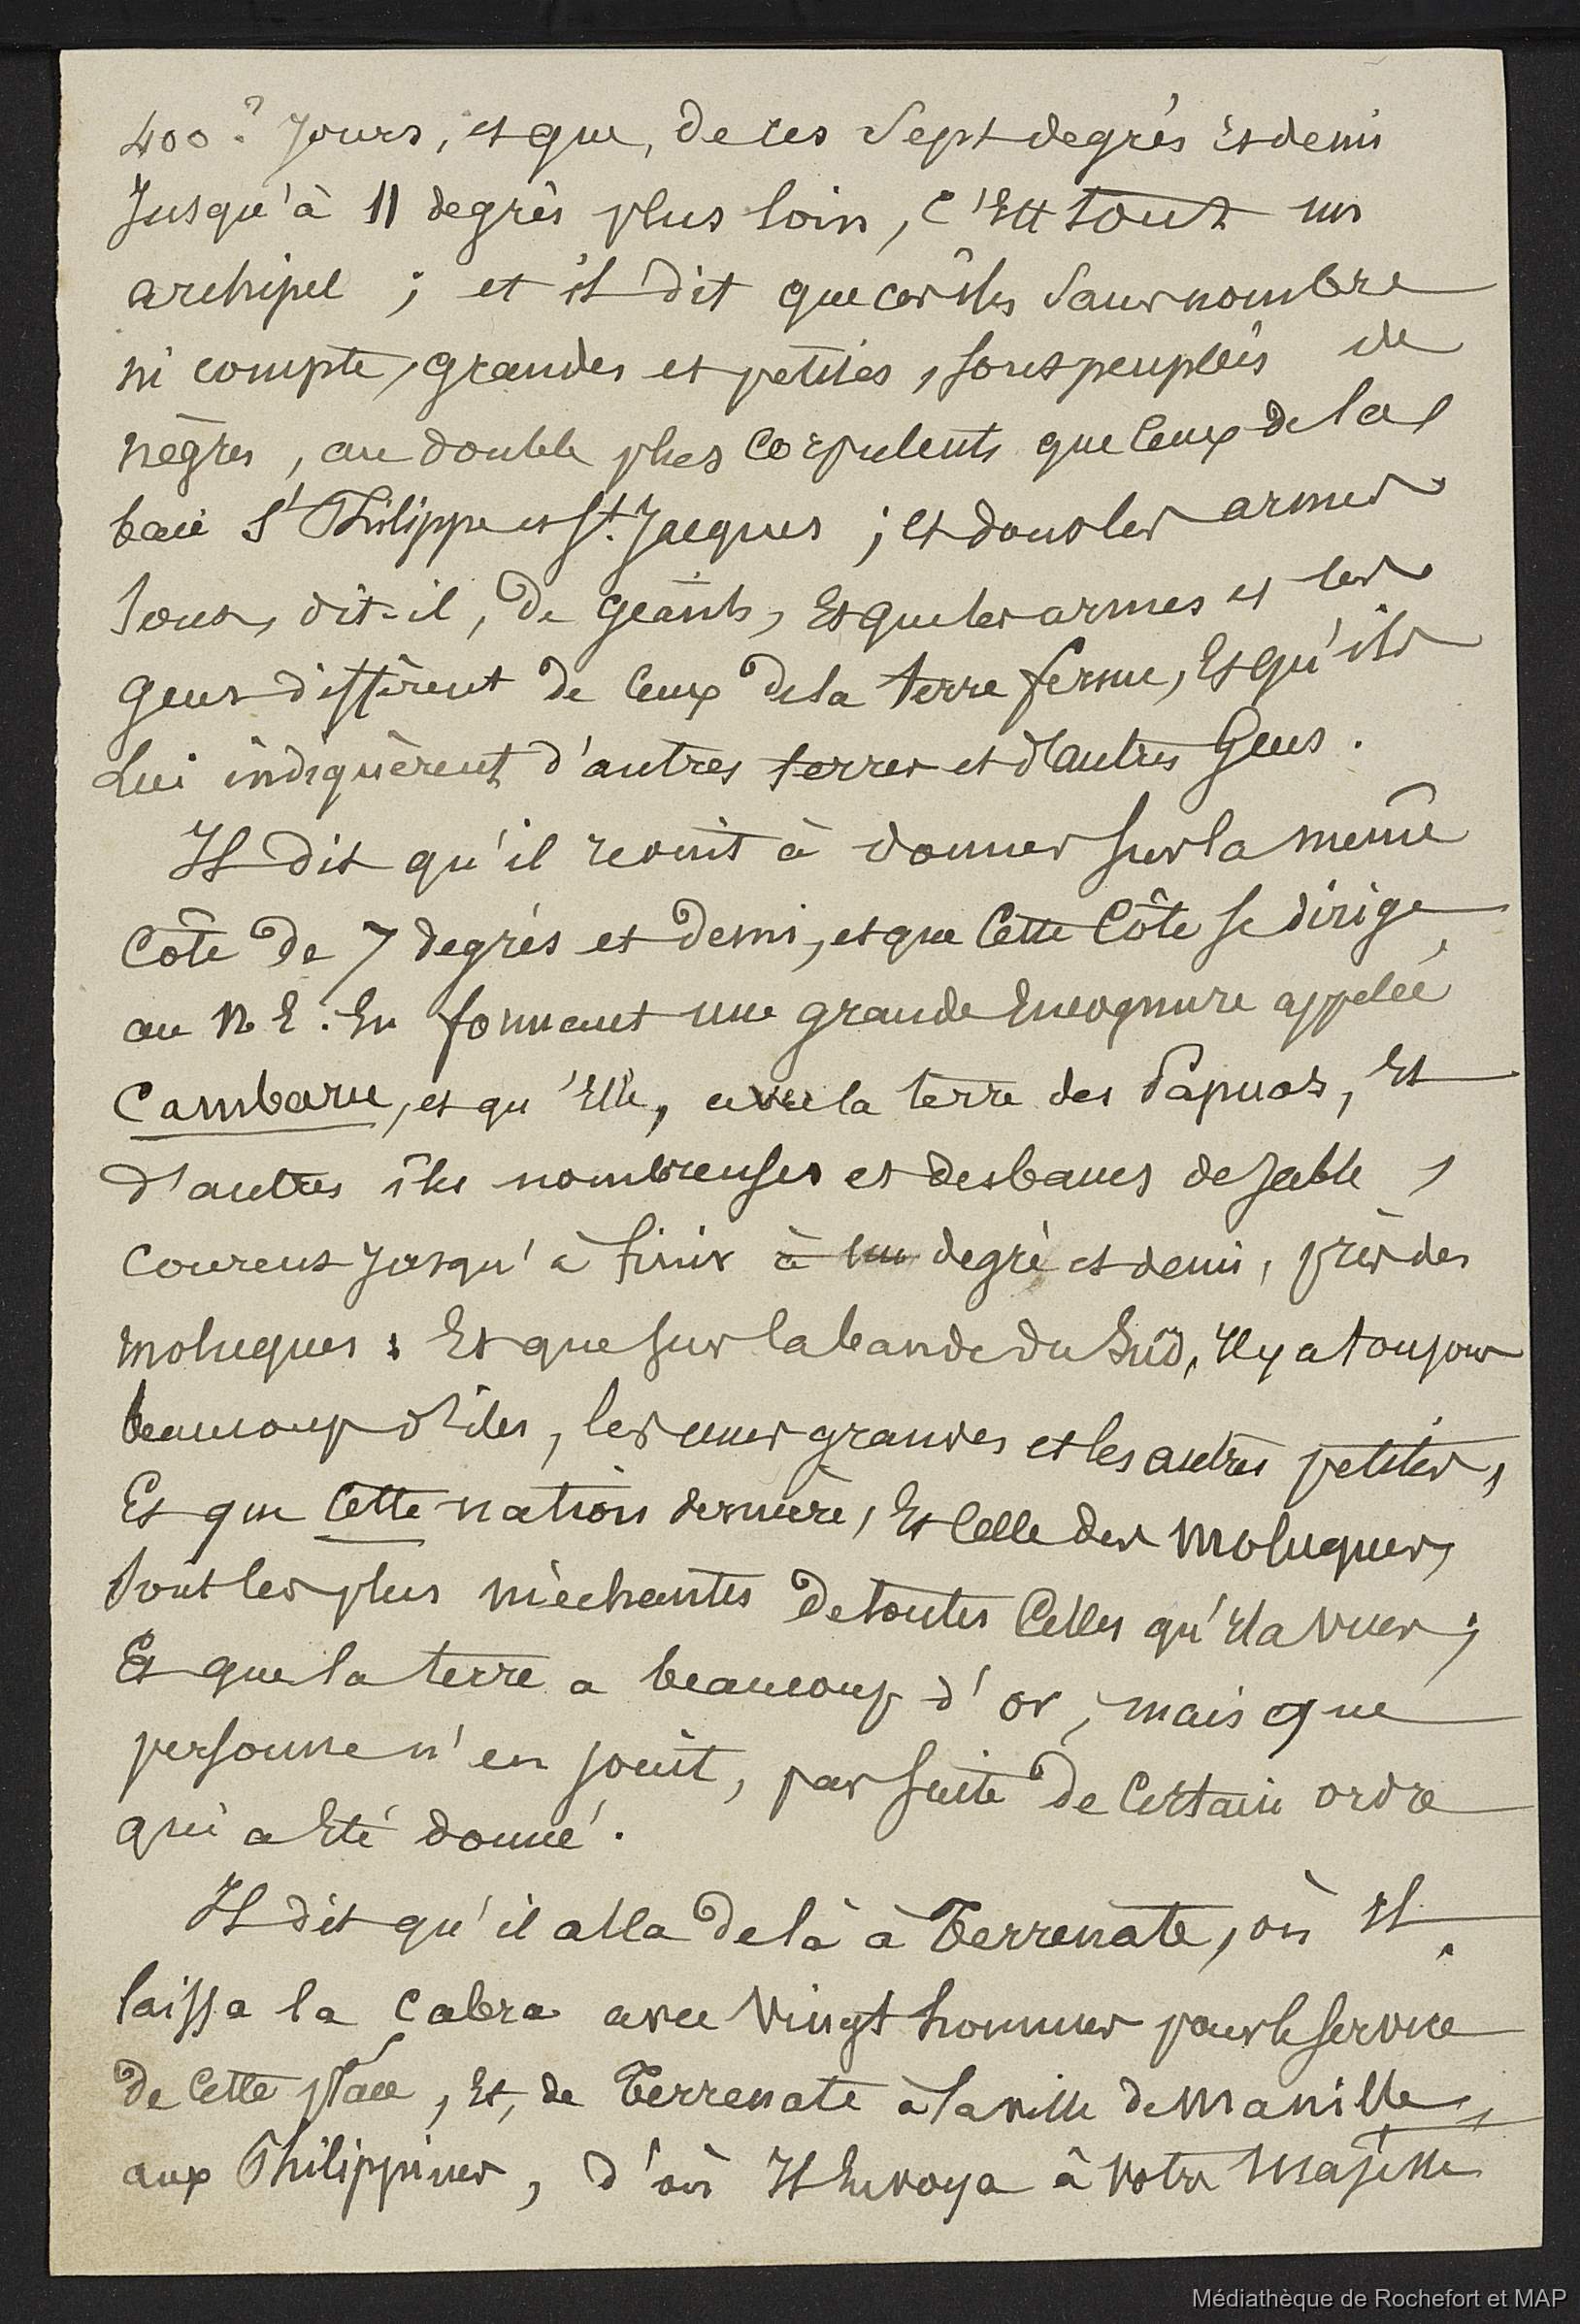 400? Jours, et que, de ces Sept degrés Et demi
Jusqu'à 11 degrés plus loin, C'Est tout un
archipel ; et il dit que ces îles Sans nombre
ni compte, grandes et petites, sont peuplées de
nègres, au double plus Corpulents que Ceux de la
baie St Philippe et St. Jacques ; Et dont les armes
Sont, dit-il, De géants, Et que les armes et les
Gens diffèrent De Ceux De la terre ferme, Et qu'ils
Lui indiquèrent d'autres terres et d'autres Gens.
Il dit qu'il revint à donner sur la même
Côte De 7 degrés et demi, et que Cette Côte se dirige
au N E. En formant une grande Encognure appelée
Cambaru, et qu'Elle, avec la terre des Papuas, Et
d'autres îles nombreuses et des bancs de sable,
Courent jusqu'à finir à un degré et demi, près des
moluques : Et que sur la bande du Sud, Il y a toujours
beaucoup d'îles, les unes grandes et les autres petites,
Et que Cette nation dernière, Et Celle des Moluques,
Sont les plus méchantes De toutes Celles qu'Il a vues ;
Et que la terre a beaucoup d'or, mais que
personne n'en jouit, par suite De Certain ordre
qui a Eté donné.
Il dit qu'il alla De là à Terrenate, où Il
laissa la Cabra avec vingt hommes pour le service
De Cette place, Et, de Terrenate à la ville de Manille,
aux Philippines, d'où Il Envoya à votre Majesté
Médiathèque de Rochefort et MAP